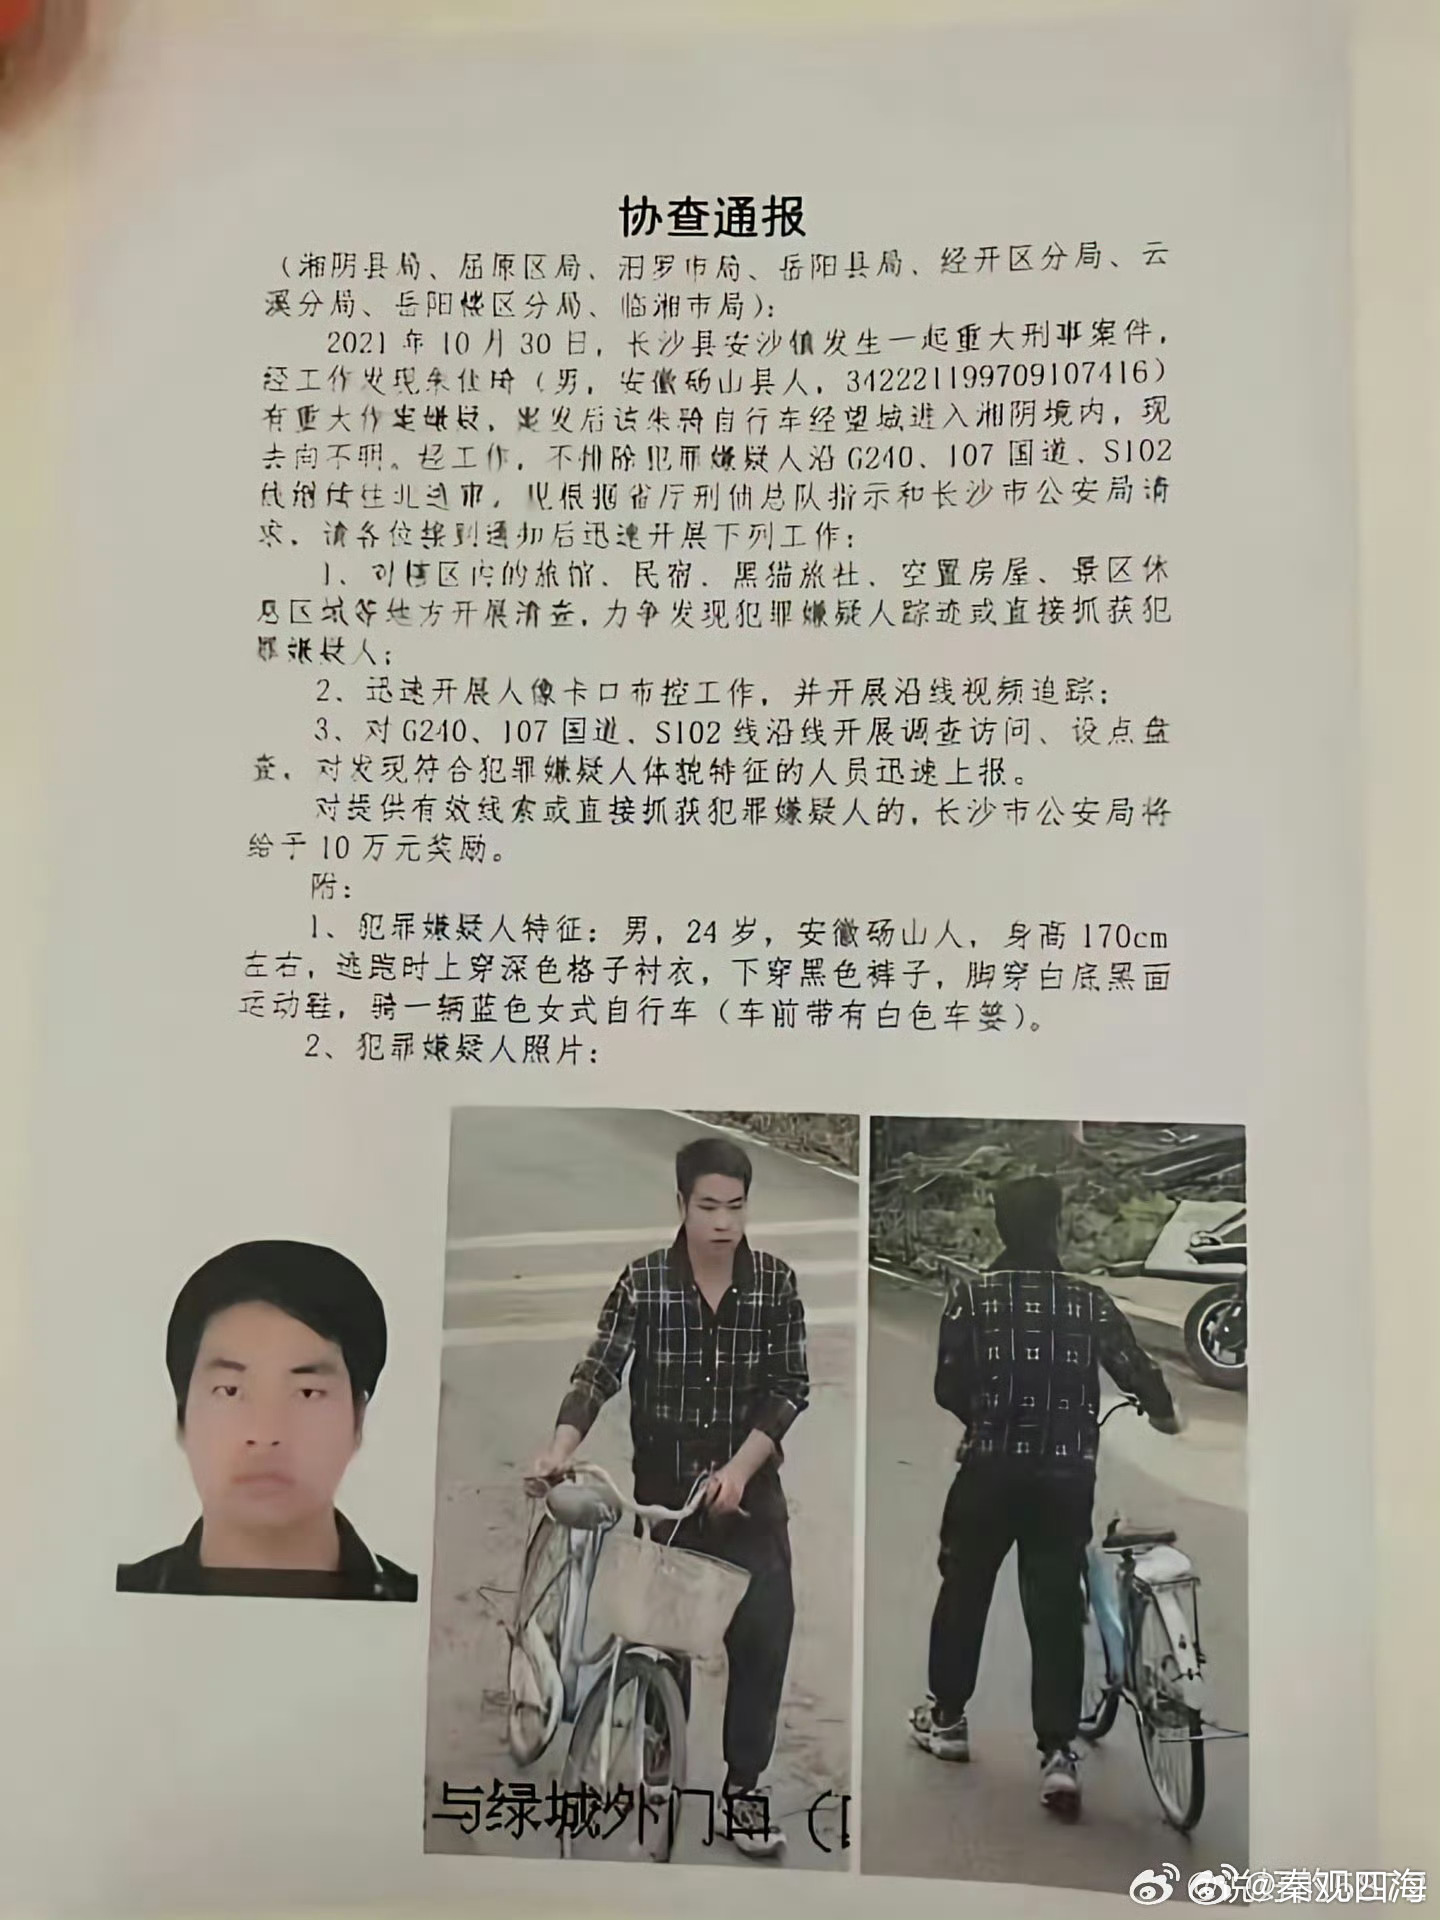 协查通报
（湘阴县局、屈原区局、汨罗市局、岳阳县局、经开区分局、云
溪分局、岳阳楼区分局、临湘市局）：
2021年10月30日，长沙县安沙镇发生一起重大刑事案件，
经工作发现朱（男，安徽砀山县人，342221199709107416）
有重大作案嫌疑，案发后该朱骑自行车经望城进入湘阴境内，现
去向不明。经工作，不排除犯罪嫌疑人沿G240、107国道、S102
线继续往北逃窜，现根据省厅刑侦总队指示和长沙市公安局请
求，请各位接到通知后迅速开展下列工作：
1、对辖区内的旅馆、民宿、黑猫旅社、空置房屋、景区休
息区域等地方开展清查，力争发现犯罪嫌疑人踪迹或直接抓获犯
罪嫌疑人；
2、迅速开展人像卡口布控工作，并开展沿线视频追踪；
3、对G240、107国道、S102线沿线开展调查访问、设点盘
查，对发现符合犯罪嫌疑人体貌特征的人员迅速上报。
对提供有效线索或直接抓获犯罪嫌疑人的，长沙市公安局将
给于10万元奖励。
附：
1、犯罪嫌疑人特征：男，24岁，安徽砀山人，身高170cm
左右，逃跑时上穿深色格子衬衣，下穿黑色裤子，脚穿白底黑面
运动鞋，骑一辆蓝色女式自行车（车前带有白色车篓）。
2、犯罪嫌疑人照片：
与绿城外门口（
@秦观四海